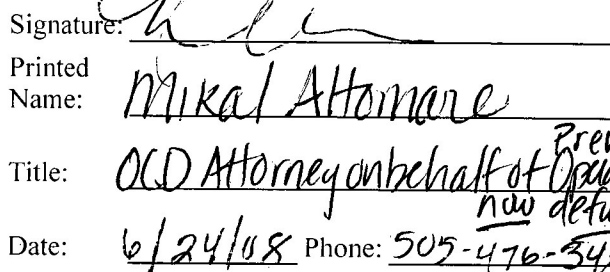 Signature:
Printed
Name: Mikal Altomare
Prev
Title: OCD Attorney on behalf of Ope
now defu
Date: 6/24/08 Phone: 505-476-34